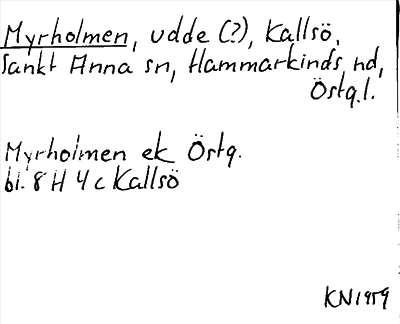 Myrholmen, udde (?), Kallsö,
Sankt Anna sn, Hammarkinds hd,
Östg.l.
Myrholmen ek Östg.
bl. 8 H 4 c Kallsö
KN1959